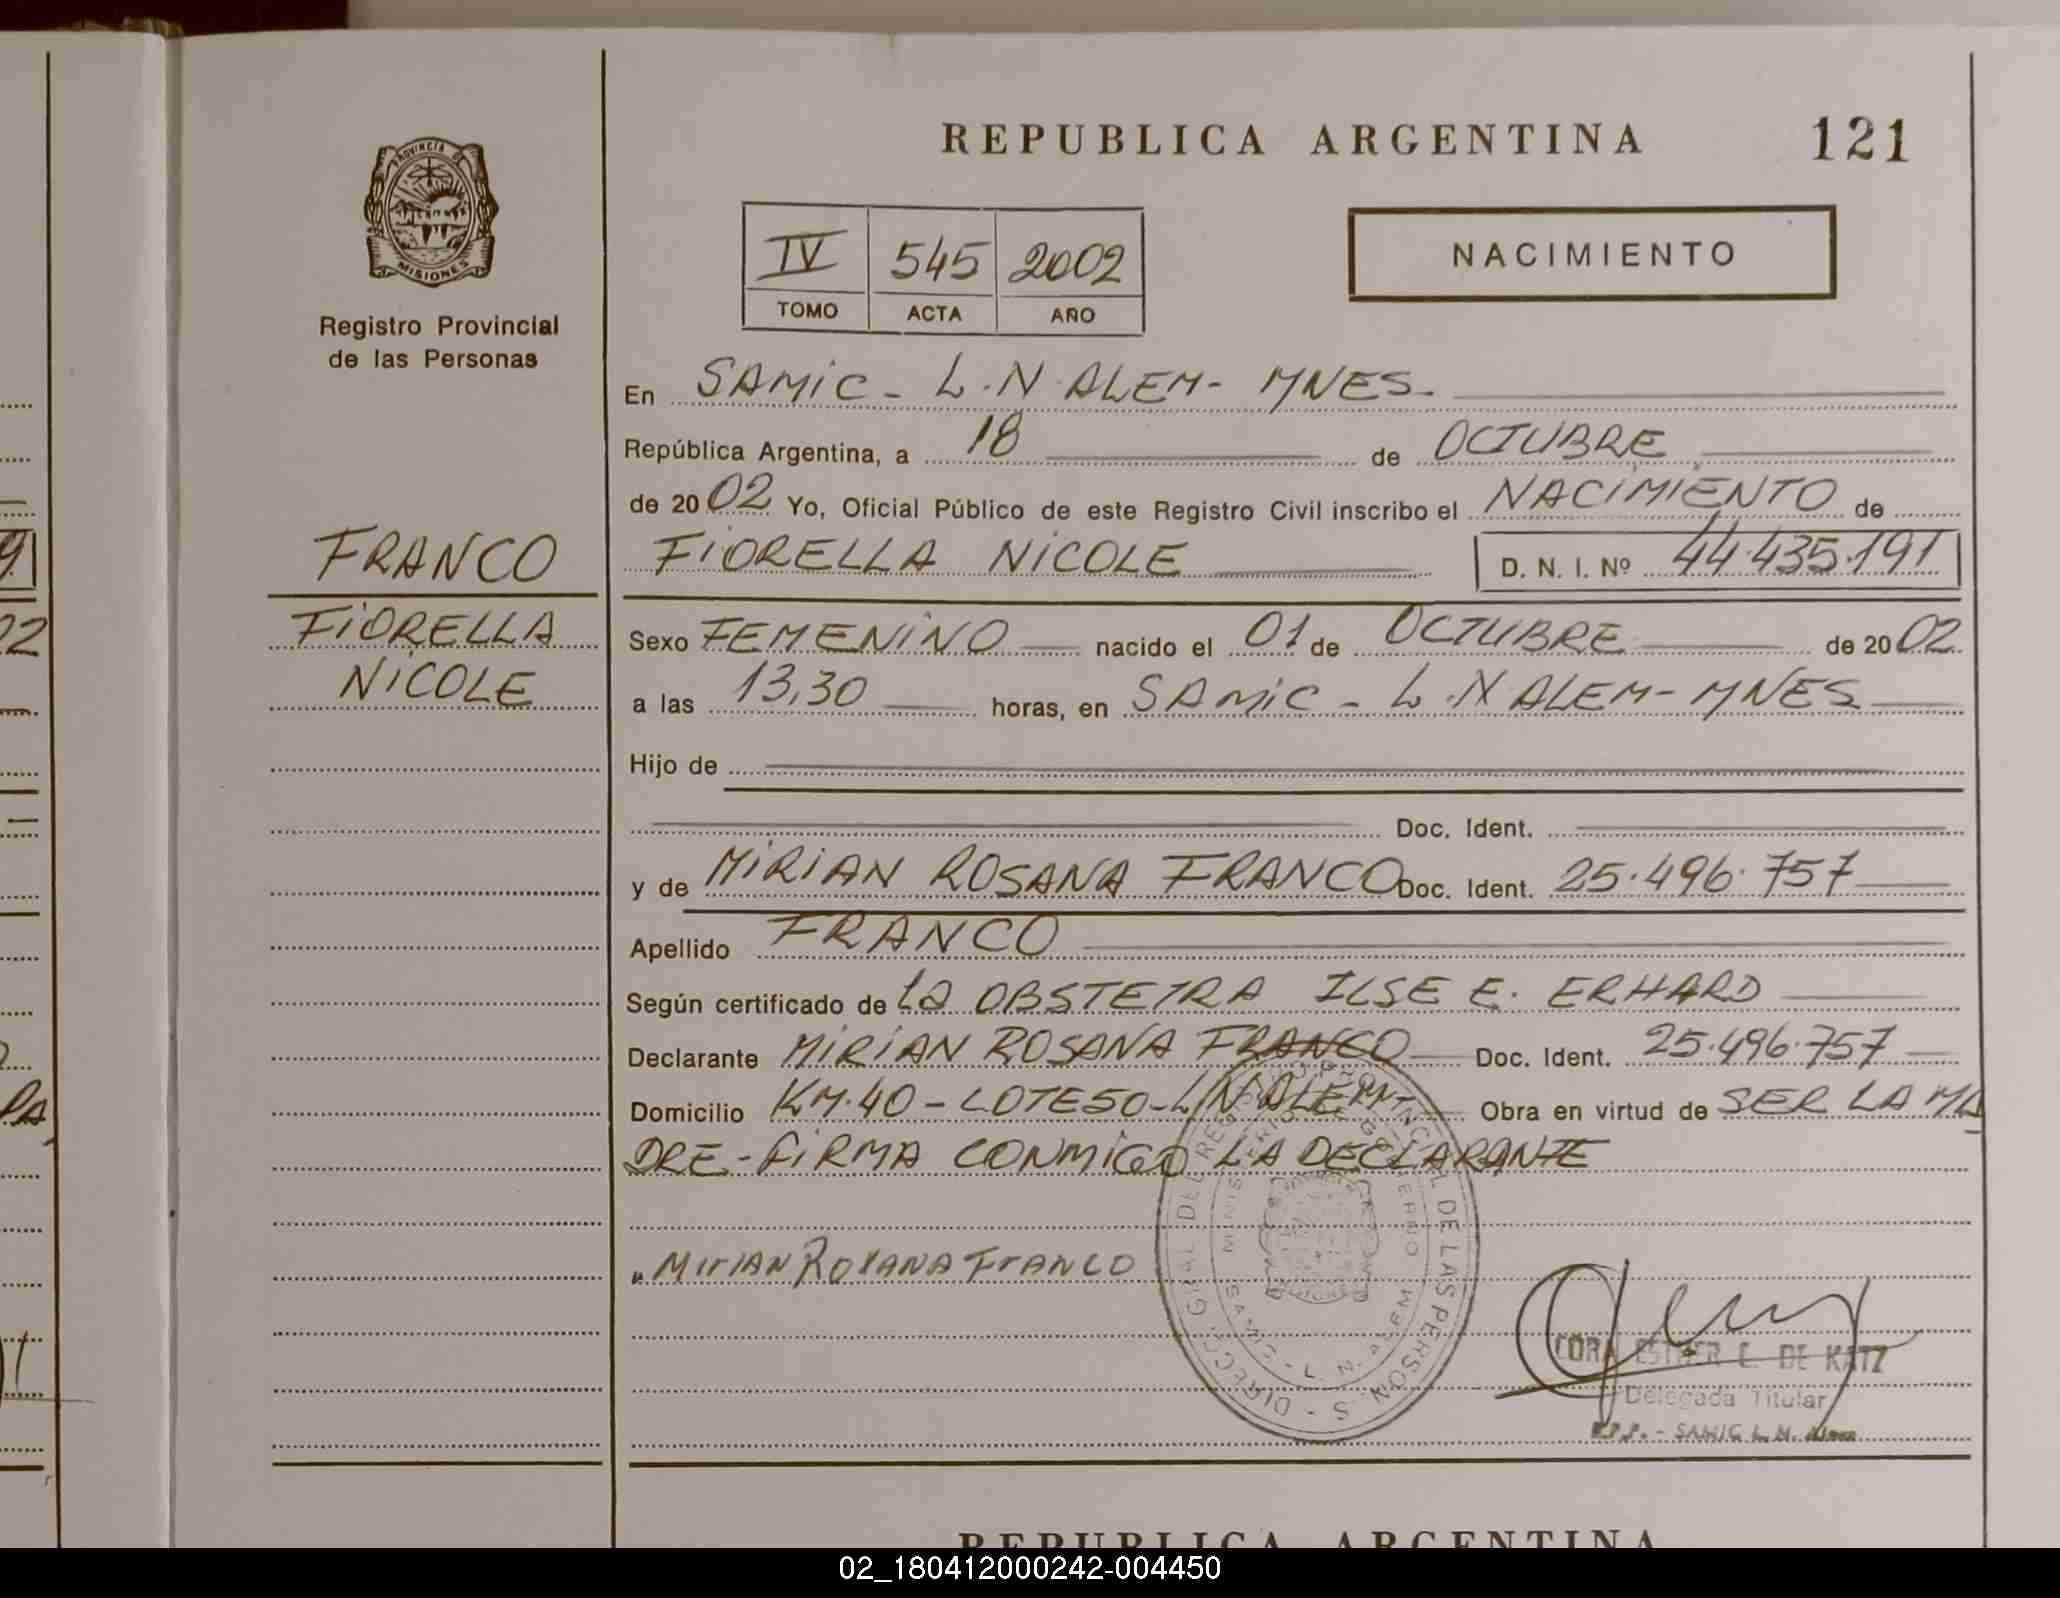 REPUBLICA ARGENTINA 121
PROVINCIA DE
MISIONES
Registro Provincial
de las Personas
IV 545 2002
TOMO ACTA AÑO
NACIMIENTO
En SAMIC - L.N ALEM - MNES.
República Argentina, a 18 de OCTUBRE
de 2002 Yo, Oficial Público de este Registro Civil inscribo el NACIMIENTO de
FRANCO
FIORELLA NICOLE D. N. I. Nº 44.435.191
FIORELLA
NICOLE
Sexo FEMENINO nacido el 01 de OCTUBRE de 2002
a las 13,30 horas, en SAMIC - L.N ALEM - MNES
Hijo de
Doc. Ident.
y de MIRIAN ROSANA FRANCO Doc. Ident. 25.496.757
Apellido FRANCO
Según certificado de La OBSTETRA ILSE E. ERHARD
Declarante MIRIAN ROSANA FRANCO Doc. Ident. 25.496.757
Domicilio KM.40 - LOTE 50 - L.N ALEM - Obra en virtud de SER LA MA
DRE - FIRMA CONMIGO LA DECLARANTE
MIriAN ROXANA FrANCO
CORA ESTHER C. DE KATZ
Delegada Titular
R.P.P. - SAMIC L. N. Alem
REPUBLICA ARGENTINA
02_180412000242-004450